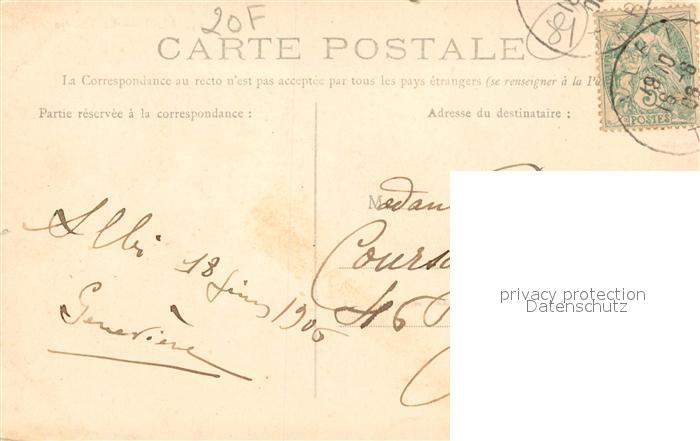 20F
81
CARTE POSTALE
La Correspondance au recto n'est pas acceptée par tous les pays étrangers (se renseigner à la
Partie réservée à la correspondance :
Adresse du destinataire :
POSTES
Madam
Albi 18 juin 1906
Cours
46
Geneviève
privacy protection
Datenschutz